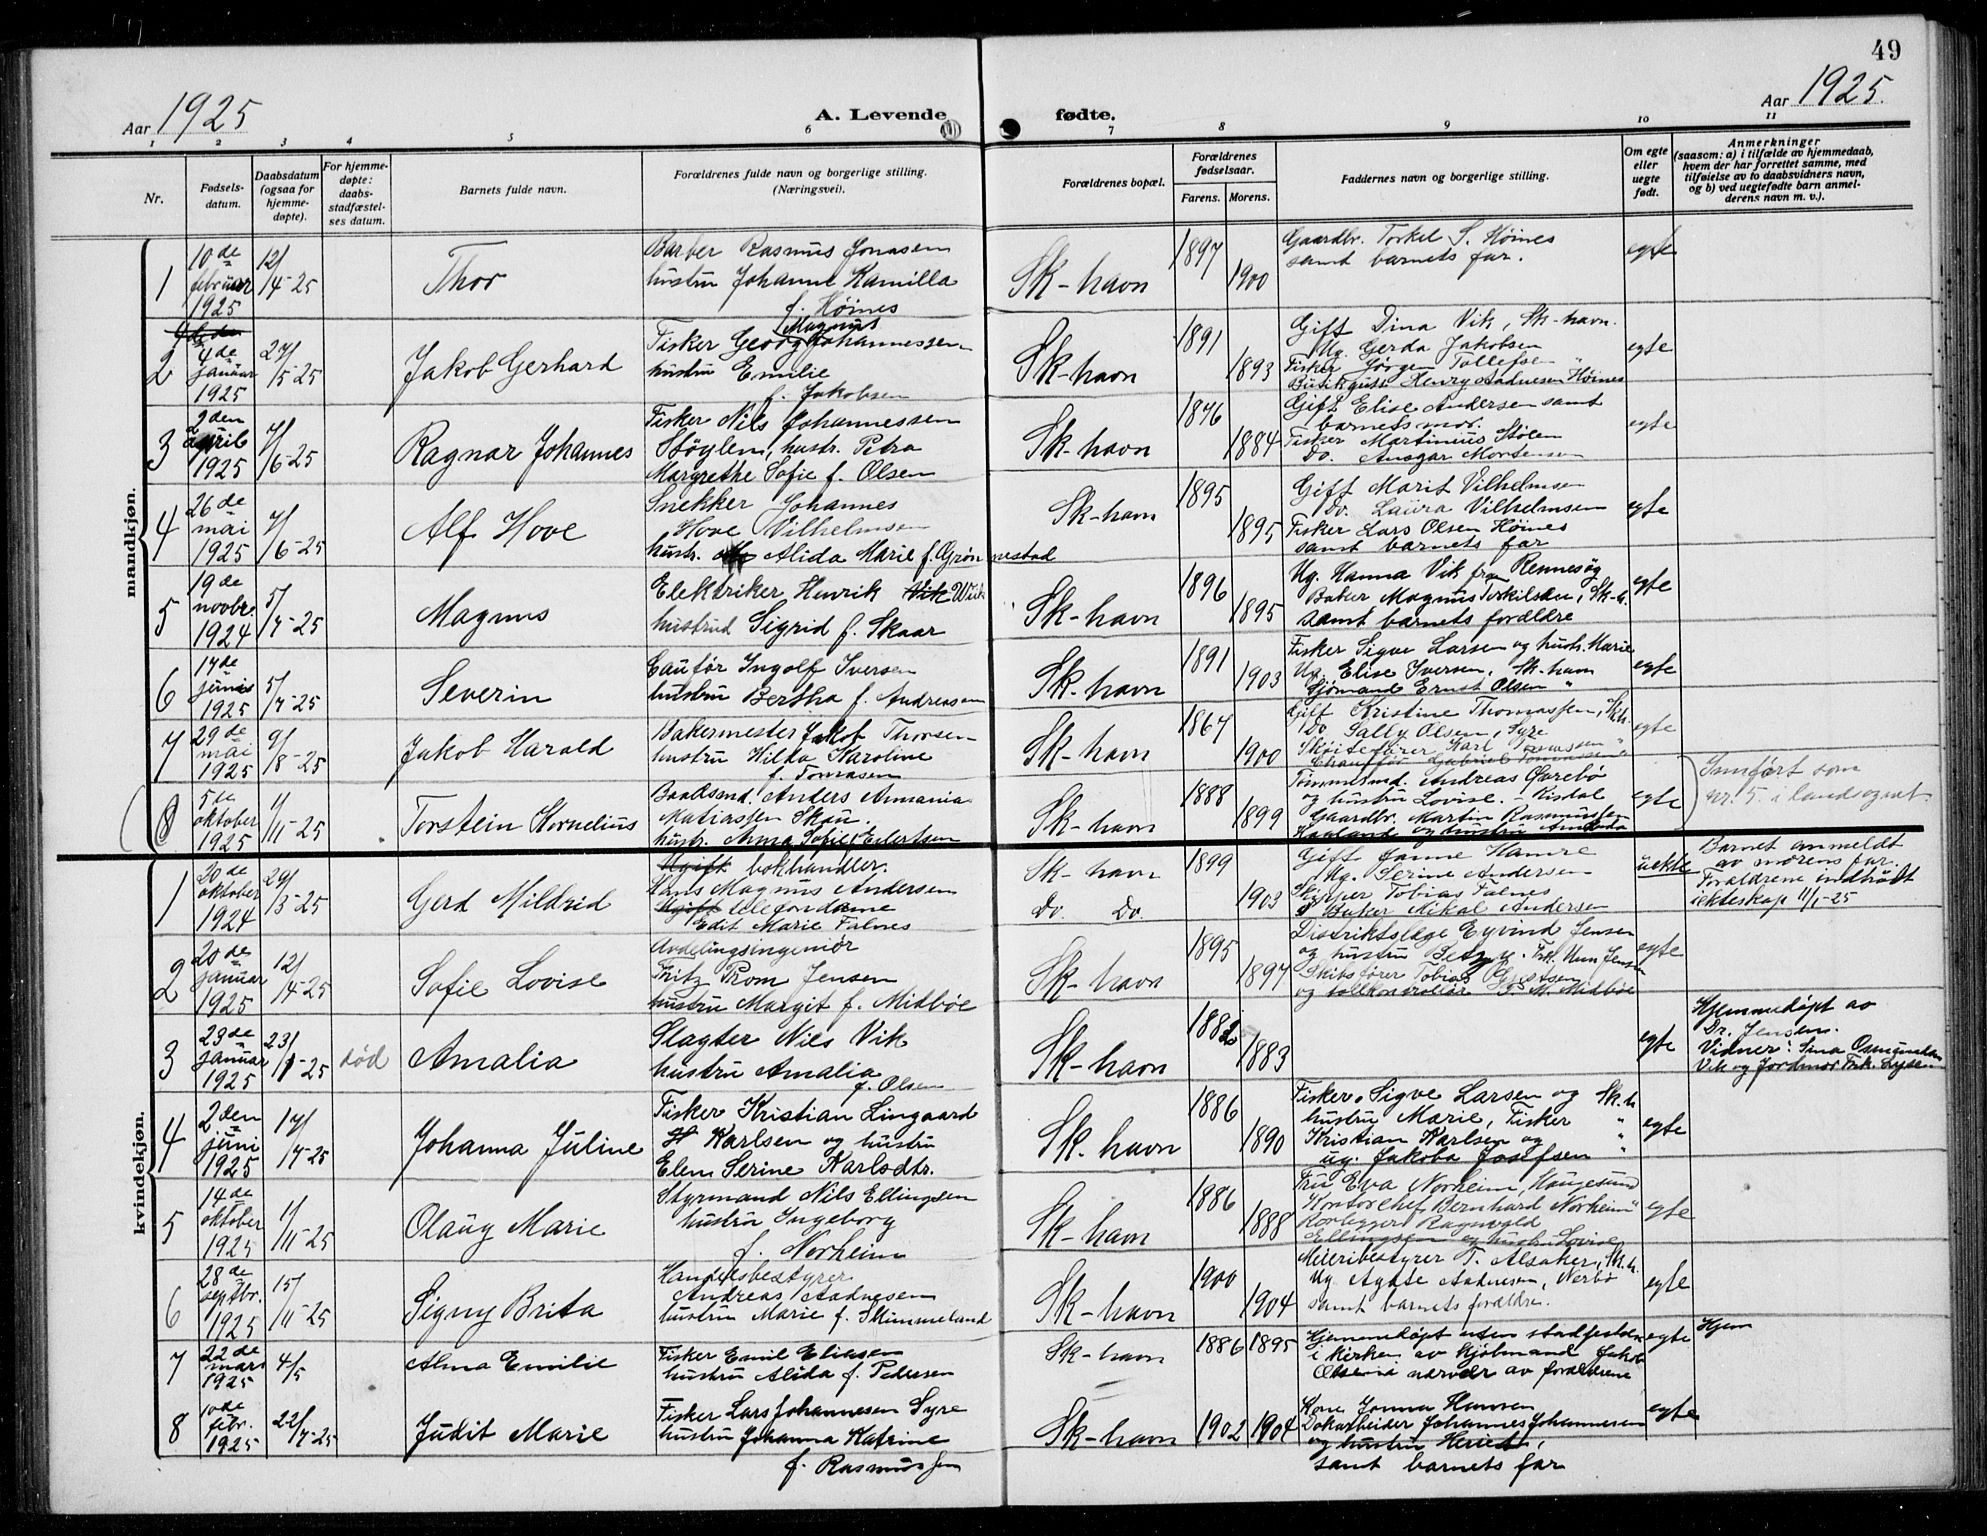 49
Aar 1925
A. Levende
fødte.
Aar 1925.
1 2 3 4 5 6 7 8 9 10 11
Nr.
Fødsels-
datum.
Daabsdatum
(ogsaa for
hjemme-
døpte).
For hjemme-
døpte:
daabs-
stadfæstel-
ses datum.
Barnets fulde navn.
Forældrenes fulde navn og borgerlige stilling.
(Næringsvei).
Forældrenes bopæl.
Forældrenes
fødselsaar.
Farens. Morens.
Faddernes navn og borgerlige stilling.
Om egte
eller
uegte
født.
Anmerkninger
(saasom: a) i tilfælde av hjemmedaab,
hvem der har forrettet samme, med
tilføielse av to daabsvidners navn,
og b) ved uegtefødte barn anmel-
derens navn m. v.).
mandkjøn.
1
10de
februar
1925
12/
/4-25
Thor
Barber Rasmus Jonasen
hustru Johanne Kamilla
f. Høines
Sk-havn
1897
1900
Gaardbr. Torkel S. Høines
samt barnets far.
egte
2
4de
januar
1925
27/
/5-25
Jakob Gerhard
Magnus
Fisker Georg Johannessen
hustru Emilie
f. Jakobsen
Sk-havn
1891
1893
Gift Dina Vik, Sk-havn.
Ug. Gerda Jakobsen
Fisker Jørgen Tollefsen "
Butikgutt Henry Aadnesen Høines
egte
3
2den
april
1925
7/
/6-25
Ragnar Johannes
Fisker Nils Johannessen
Støylen, hustr. Petra
Margrethe Sofie f. Olsen
Sk-havn
1876
1884
Gift Elise Andersen samt
barnets mor.
Fisker Martinius Stølen
Do. Ansgar Mortensen
egte
4
26de
mai
1925
7/
/6-25
Alf Hove
Snekker Johannes
Hove Vilhelmsen
hustr. Alida Marie f. Grønnestad
Sk-havn
1895
1895
Gift Marit Vilhelmsen
Do. Laura Vilhelmsen
Fisker Lars Olsen Høines
samt barnets far
egte
5
19de
novbr
1924
5/
/7-25
Magnus
Elektriker Henrik Vik Wiik
hustrud Sigrid f. Skaar
Sk-havn
1896
1895
Ug. Hanna Vik fra Rennesøy
Baker Magnus Torkilsen, Sk-h.
samt barnets forældre
egte
6
17de
juni
1925
5/
/7-25
Severin
Caufør Ingolf Iversen
hustru Bertha f. Andreasen
Sk-havn
1891
1903
Fisker Sigve Larsen og hustr. Marie
Ug. Elise Iversen, Sk-havn
Sjømand Ernst Olsen "
egte
7
29de
mai
1925
9/
/8-25
Jakob Harald
Bakermester Jakob Thorsen
hustru Hilda Karoline
f. Tomasen
Sk-havn
1867
1900
Gift Kristine Thomassen, Sk.h.
Do Sally Olsen, Syre
Skøitefører Karl Tomassen "
Chauffør Gabriel Tomassen "
egte
8
5te
oktober
1925
1/
/11-25
Torstein Kornelius
Baadsmd. Anders Annania
Matiassen Skau.
hustr. Anna Sofie Eilertsen
Sk-havn
1888
1899
Tømmermd. Andreas
og hustru Lovise. - Risdal
Gaardbr. Martin Rasmussen
Haaland og hustru
egte
Innført som
nr. 5. i landsognet.
kvindekjøn.
1
20de
oktober
1924
29/
/3-25
Gerd Mildrid
Ugift bokhandler.
Hans Magnus Andersen
Ugift telefondame
Edit Marie Falnes
Sk-havn
Do. Do.
1899
1903
Gift Janne Hamre
Ug. Serine Andersen
Skipper Tobias Falnes
Baker Mikal Andersen
uekte
Barnet anmeldt
av mørens far.
Forældrene indtraadt
i ekteskap 11/1-25
2
20de
januar
1925
12/
/4-25
Sofie Lovise
Avdelingsingeniør
Fritz Prom Jensen
hustru Margit f. Midbøe
Sk-havn
1895
1897
Distriktslæge Eyvind Jensen
og hustru Betzy. Frk. Unn Jensen
Skibsfører Tobias
og tollkontrollør M. Midbøe
egte
3
23de
januar
1925
23/
/1-25
død
Amalia
Slagter Nils Vik
hustru Amalia
f. Olsen
Sk-havn
1882
1883
egte
Hjemmedøpt av
Dr. Jensen.
Vidner: Sina Osmundsen
Vik og Jordmor Frk.
4
2den
juni
1925
17/
/7-25
Johanna Juline
Fisker Kristian Lingaard
Karlsen og hustru
Elen Serine Karlsdtr.
Sk-havn
1886
1890
Fisker Sigve Larsen og Sk.h
hustru Marie, Fisker "
Kristian Karlsen og "
ug. Jakoba Josefsen "
egte
5
14de
oktober
1925
1/
/11-25
Olaug Marie
Styrmand Nils Ellingsen
hustru Ingeborg
f. Norheim
Sk-havn
1886
1888
Fru Eva Norheim, Haugesund
Kontorchef Bernhard Norheim "
Ragnvald
Ellingsen og hustru Lovise
egte
6
28de
septbr.
1925
15/
/11-25
Signy Brita
Handelsbestyrer
Andreas Aadnesen
hustru Marie f. Skimmeland
Sk-havn
1900
1904
Meieribestyrer T. Alsaker, Sk.h.
Ug. Agate Aadnesen, Nerbø
samt barnets forældre.
egte
7
22de
mars
1925
4/5
Alma Emilie
Fisker Emil Eliasen
hustru Alida f. Pedersen
Sk-havn
1886 1895
Hjemmedøpt uten stadfestelse
i kirken av kjøbmand Jakob
Olsen i nærvær av forældrene
egte
Hjem
8
10de
febr.
1925
22/
/7-25
Judit Marie
Fisker Lars Johannesen Syre
hustru Johanna Katrine
f. Rasmussen
Sk-havn
1902 1904
Kone Jonna Hansen
Dokarbeider Johannes Johannesen
og hustru
samt barnets far
egte